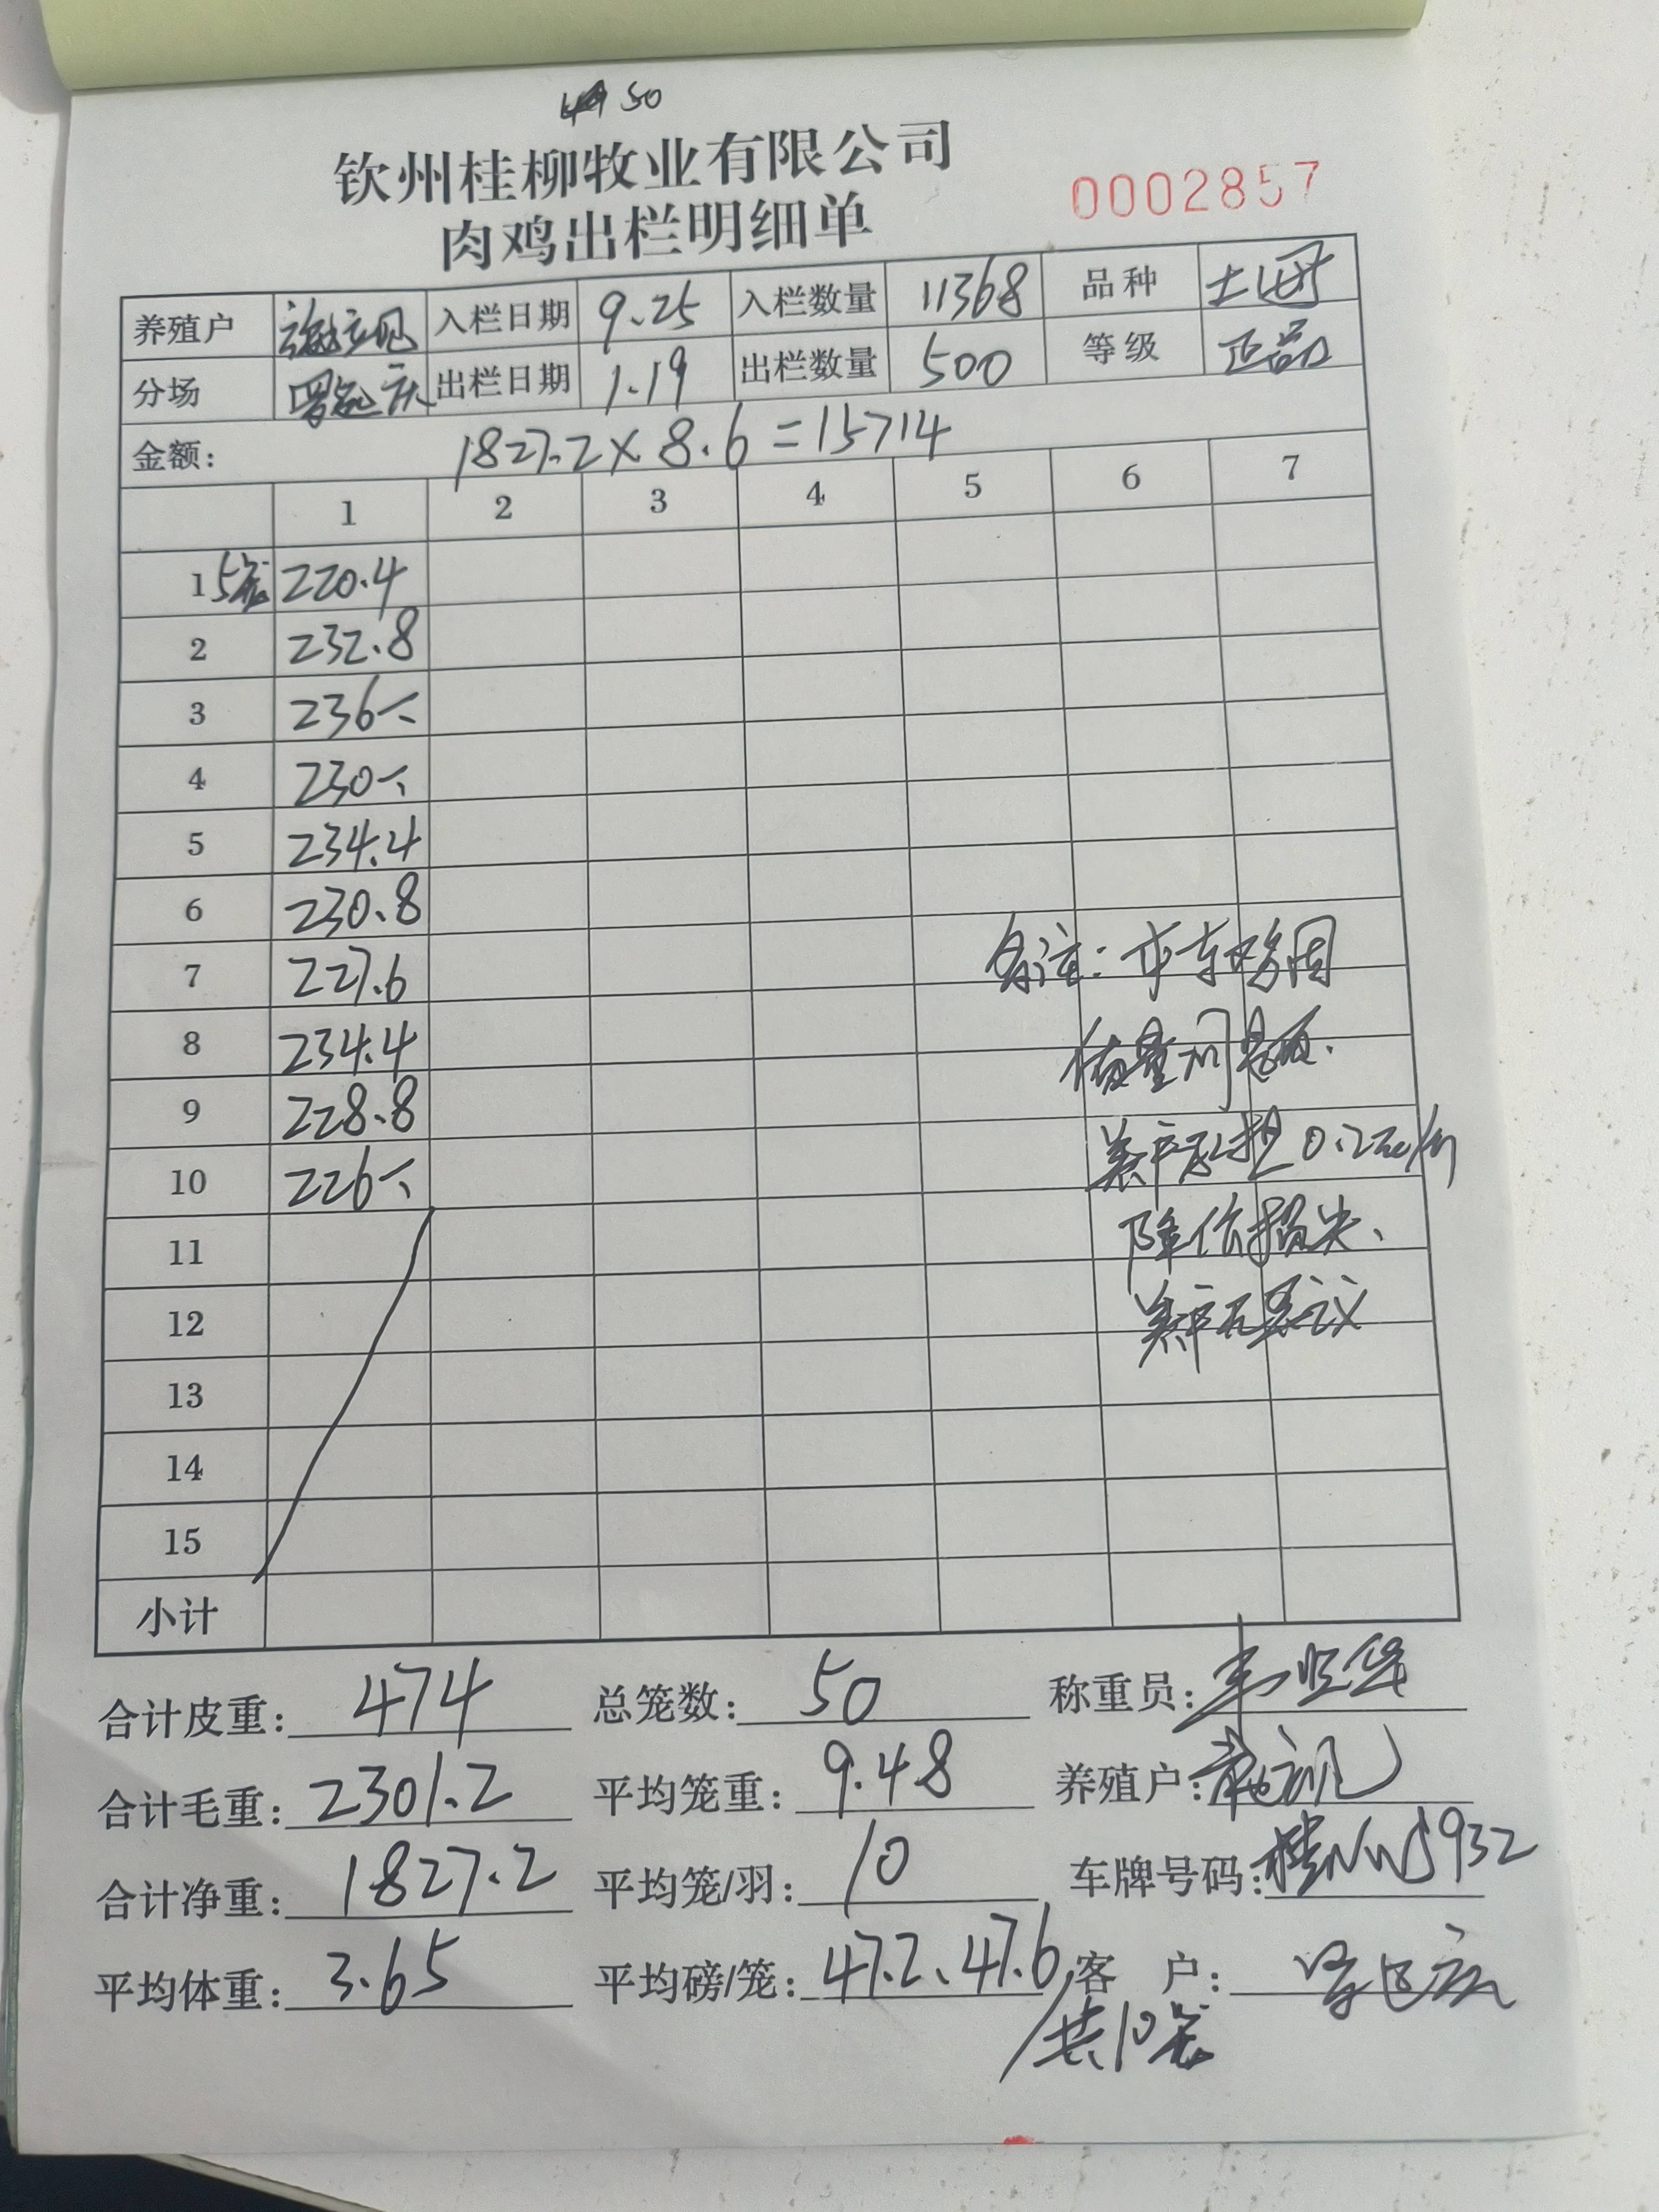 50
钦州桂柳牧业有限公司
肉鸡出栏明细单
0002857
养殖户 入栏日期 9.25 入栏数量 11368 品种 土
分场 出栏日期 1.19 出栏数量 500 等级 正品
金额: 1827.2×8.6=15714
1 2 3 4 5 6 7
1 5笼 220.4
2 232.8
3 236、
4 230、
5 234.4
6 230.8
7 227.6
8 234.4
9 228.8
10 226、
11
12
13
14
15
小计
备注: 本车鸡因
质量问题、
养户承担0.2元/斤
降价损失、
养户无异议
合计皮重: 474 总笼数: 50 称重员:
合计毛重: 2301.2 平均笼重: 9.48 养殖户:
合计净重: 1827.2 平均笼/羽: 10 车牌号码: 桂N 5932
平均体重: 3.65 平均磅/笼: 47.2、47.6 客 户:
共10笼